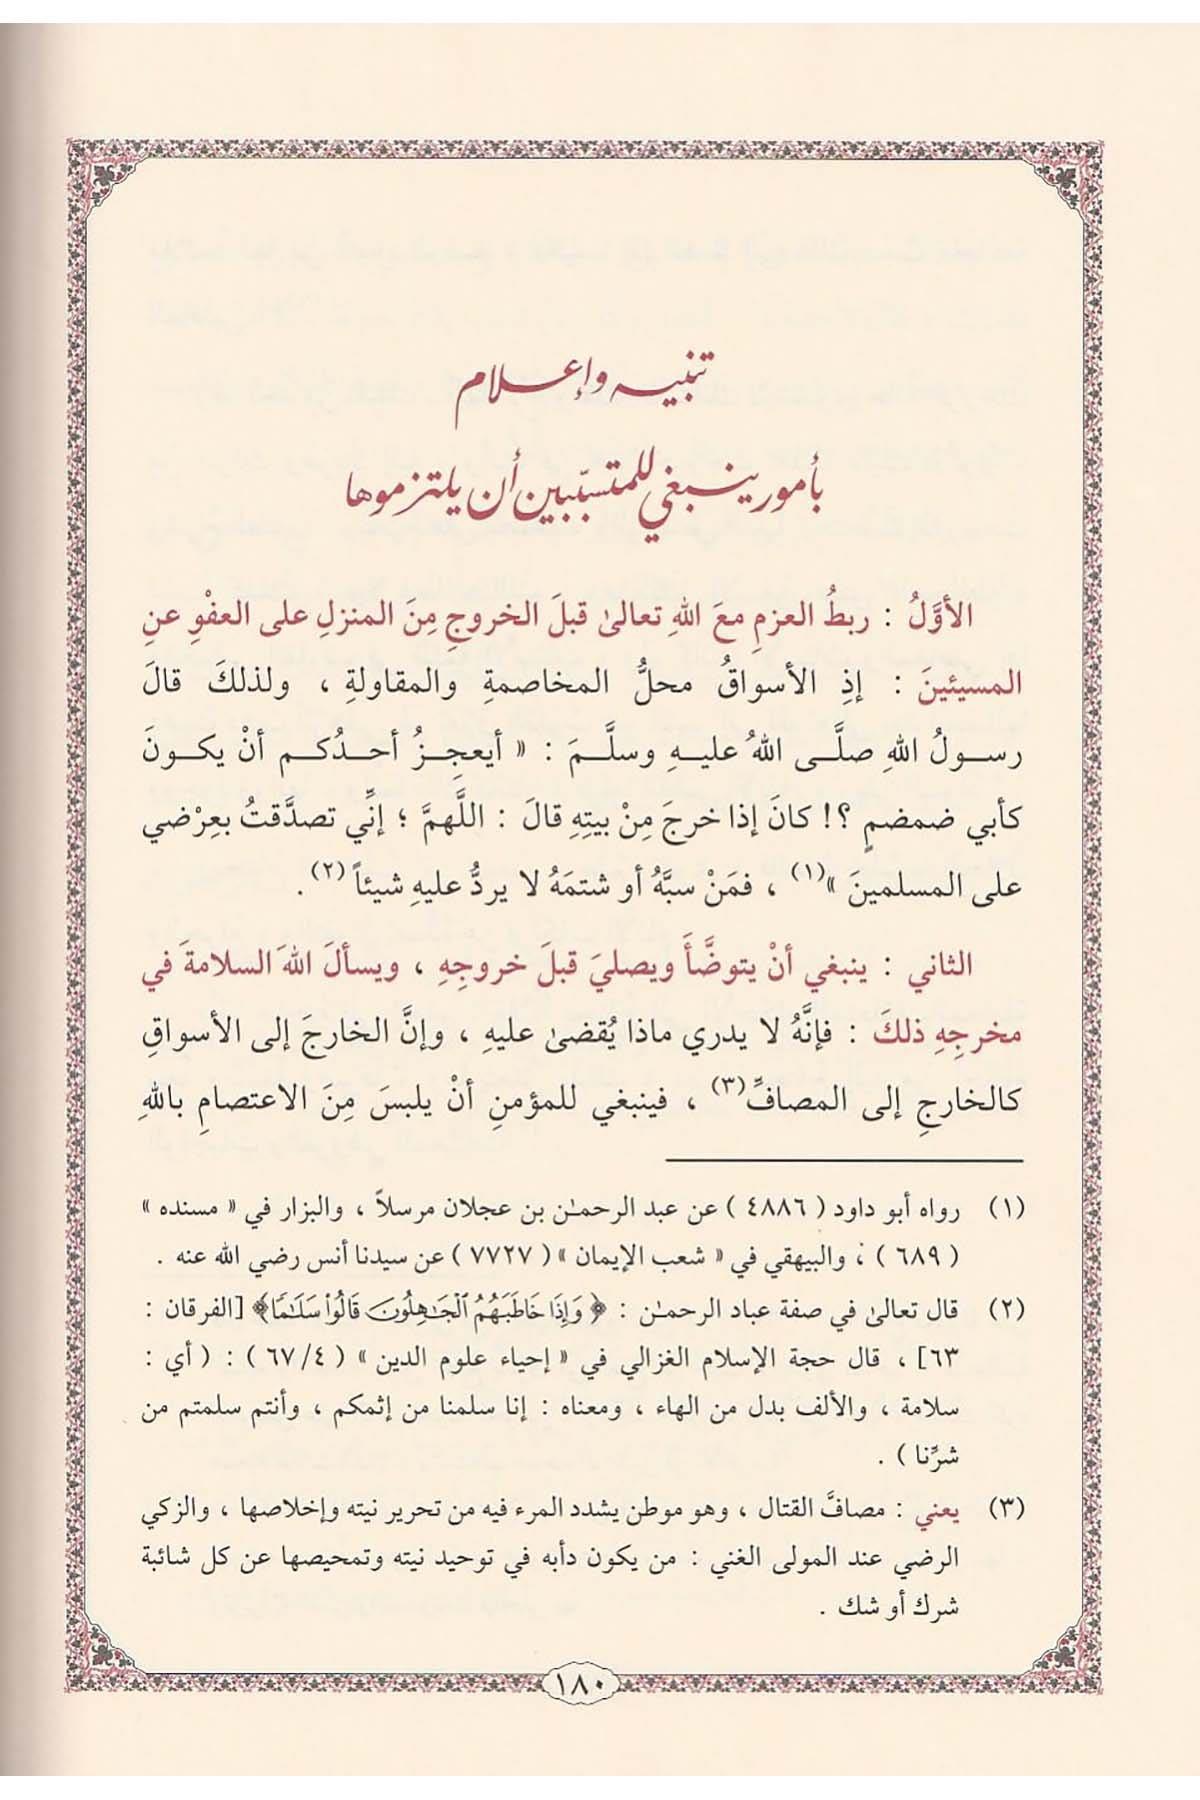 تنبيه وإعلام
بأمور ينبغي للمتسبّبين أن يلتزموها
الأوَّلُ : ربطُ العزمِ معَ اللهِ تعالىٰ قبلَ الخروجِ مِنَ المنزلِ على العفْوِ عنِ
المسيئينَ : إذِ الأسواقُ محلُّ المخاصمةِ والمقاولةِ ، ولذلكَ قالَ
رسولُ اللهِ صلَّى اللهُ عليهِ وسلَّمَ : « أيعجِزُ أحدُكم أنْ يكونَ
كأبي ضمضمٍ ؟! كانَ إذا خرجَ مِنْ بيتِهِ قالَ : اللَّهمَّ ؛ إنِّي تصدَّقتُ بعِرْضي
على المسلمينَ »(١) ، فمَنْ سبَّهُ أو شتمَهُ لا يردُّ عليهِ شيئاً (٢) .
الثاني : ينبغي أنْ يتوضَّأَ ويصليَ قبلَ خروجِهِ ، ويسألَ اللهَ السلامةَ في
مخرجِهِ ذلكَ : فإنَّهُ لا يدري ماذا يُقضىٰ عليهِ ، وإنَّ الخارجَ إلى الأسواقِ
كالخارجِ إلى المصافِّ(٣) ، فينبغي للمؤمنِ أنْ يلبسَ مِنَ الاعتصامِ باللهِ
(١) رواه أبو داود ( ٤٨٨٦ ) عن عبد الرحمٰن بن عجلان مرسلاً ، والبزار في « مسنده »
( ٦٨٩ ) ، والبيهقي في « شعب الإيمان » ( ٧٧٢٧ ) عن سيدنا أنس رضي الله عنه .
(٢) قال تعالىٰ في صفة عباد الرحمٰن : ﴿ وَإِذَا خَاطَبَهُمُ ٱلْجَٰهِلُونَ قَالُوا۟ سَلَٰمًا ﴾ [الفرقان :
٦٣] ، قال حجة الإسلام الغزالي في « إحياء علوم الدين » ( ٦٧/٤ ) : ( أي :
سلامة ، والألف بدل من الهاء ، ومعناه : إنا سلمنا من إثمكم ، وأنتم سلمتم من
شرِّنا ) .
(٣) يعني : مصافَّ القتال ، وهو موطن يشدد المرء فيه من تحرير نيته وإخلاصها ، والزكي
الرضي عند المولى الغني : من يكون دأبه في توحيد نيته وتمحيصها عن كل شائبة
شرك أو شك .
١٨٠